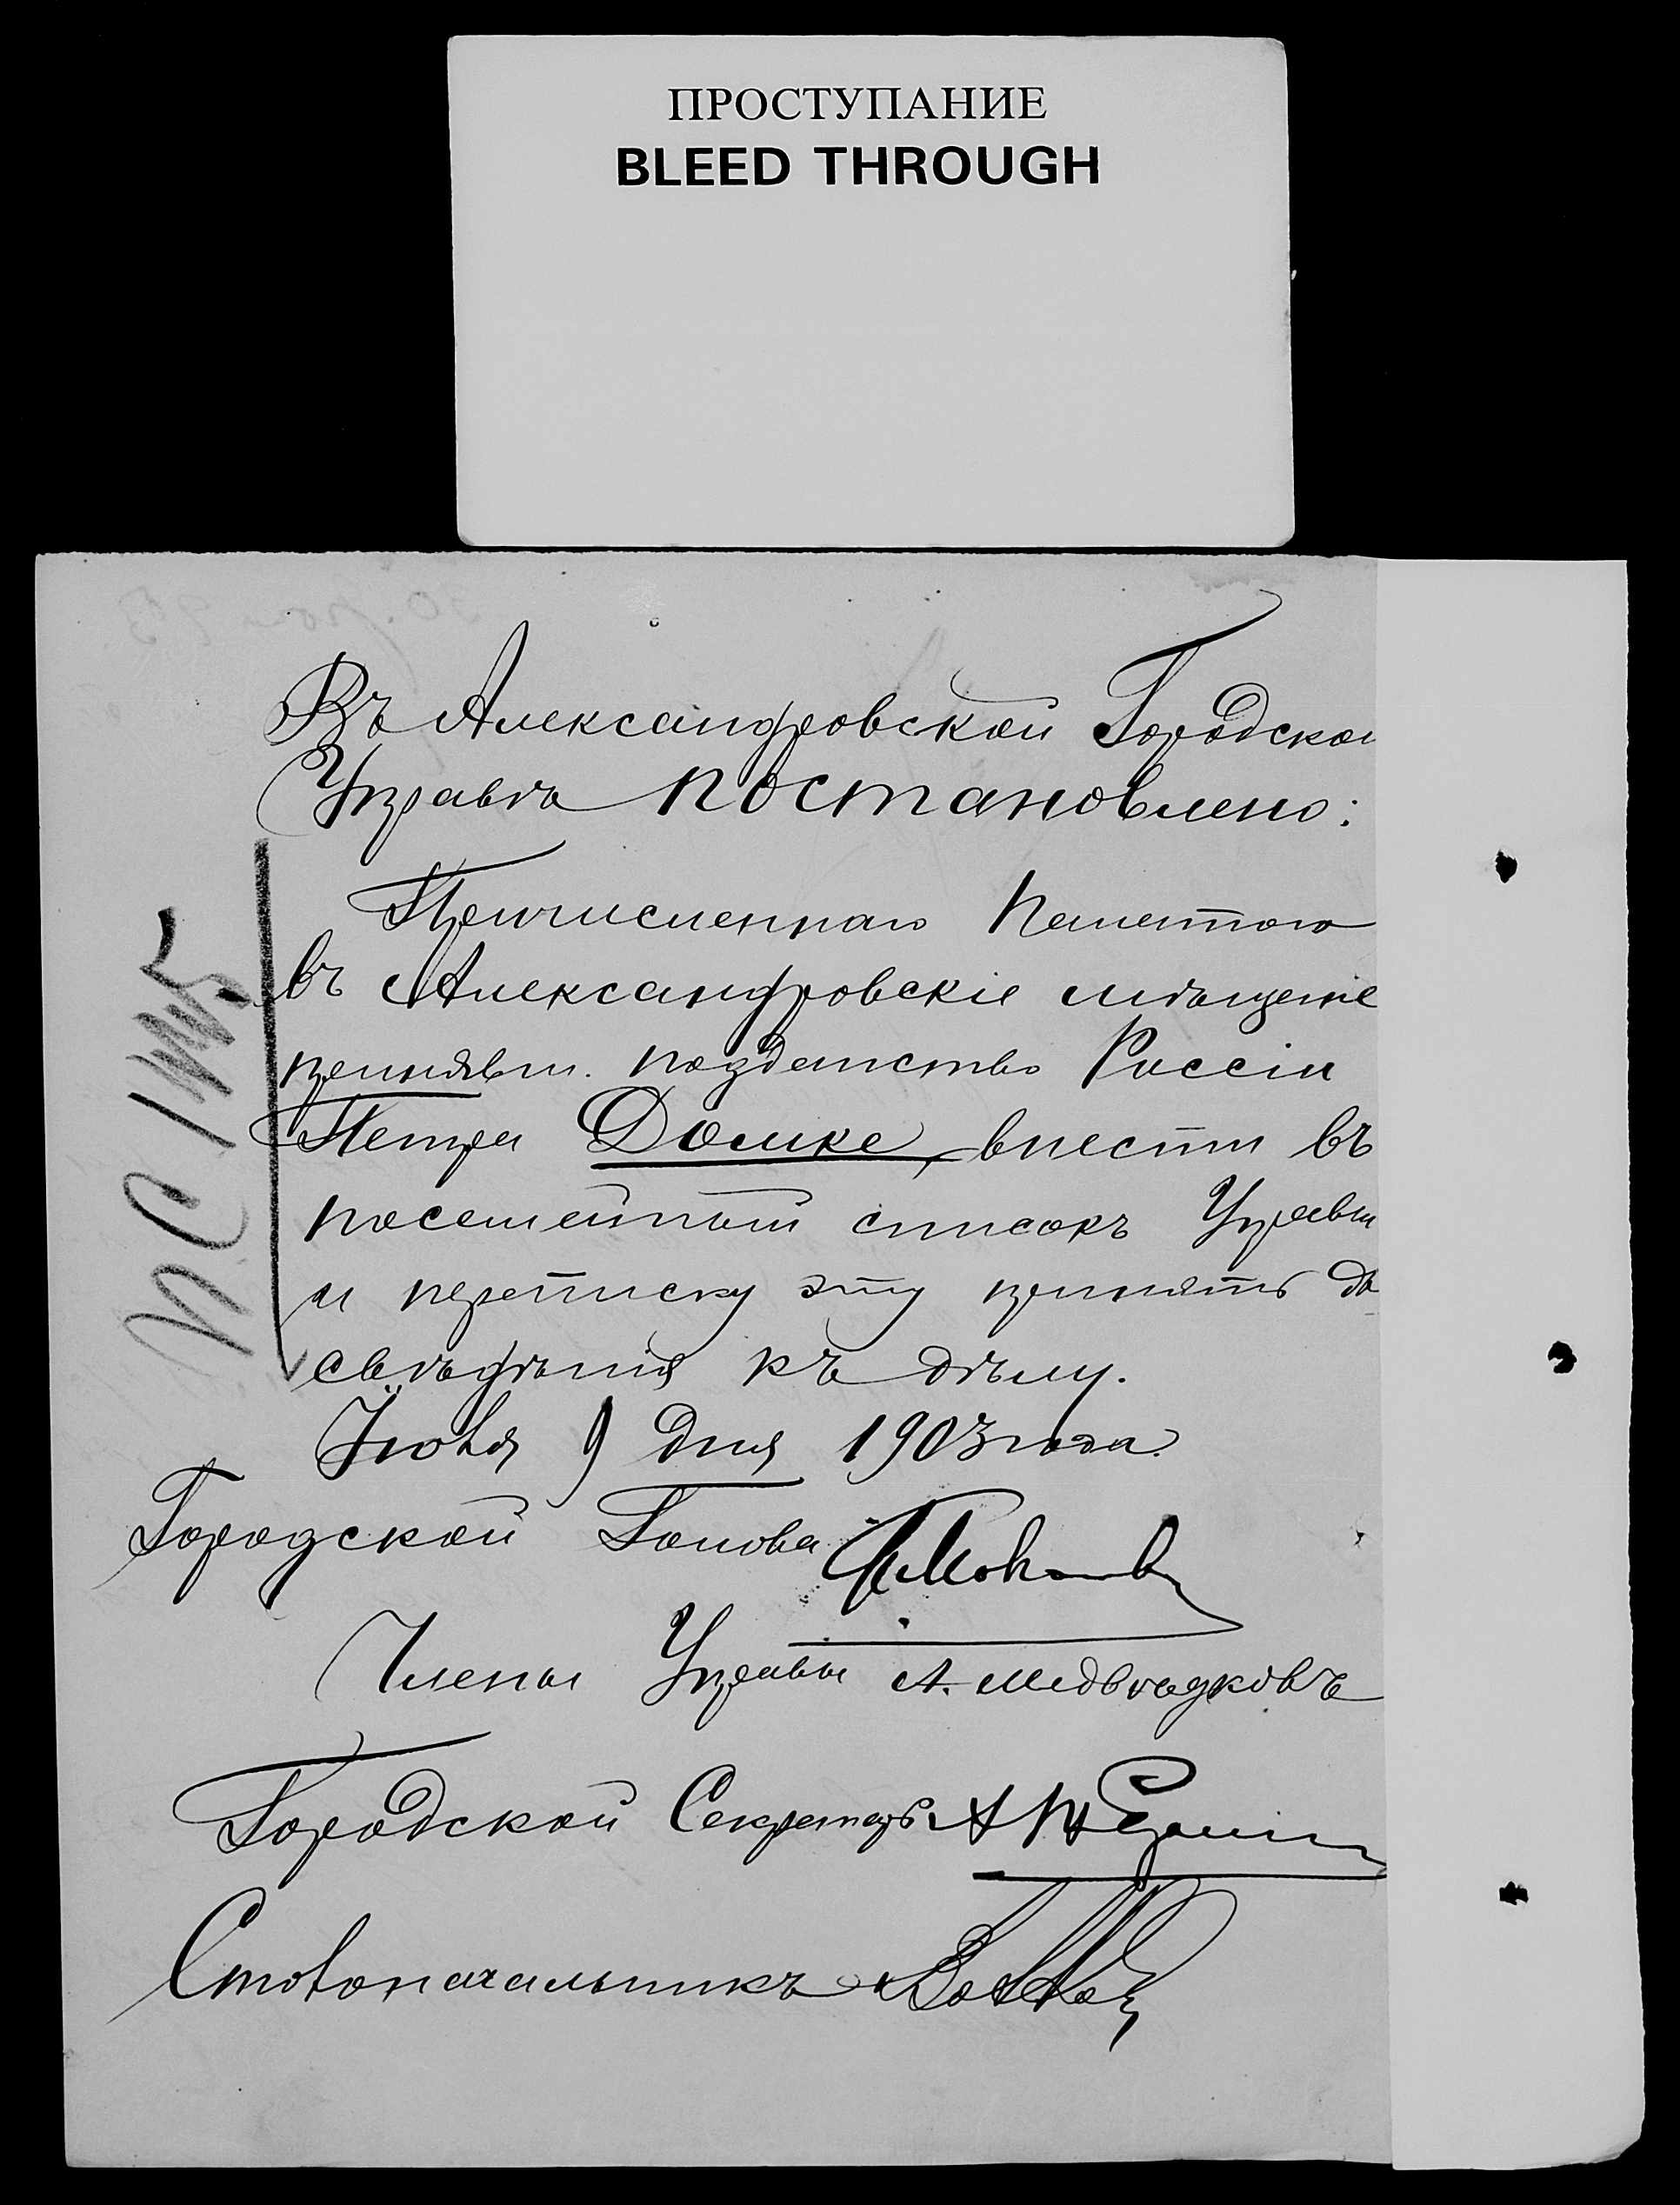 ПРОСТУПАНИЕ
BLEED THROUGH
Въ Александровской Городской
Управѣ постановлено:
Причисленнаго Палатою
въ Александровскіе мѣщане
принявш. подданство Россіи
Петра Домке, внести въ
посемейный списокъ Управы
и переписку эту принять до
свѣдѣнія къ дѣлу.
Іюля 9 дня 1903 года.
Городской Голова
Члены Управы А. Медвѣдковъ
Городской Секретарь
Столоначальникъ